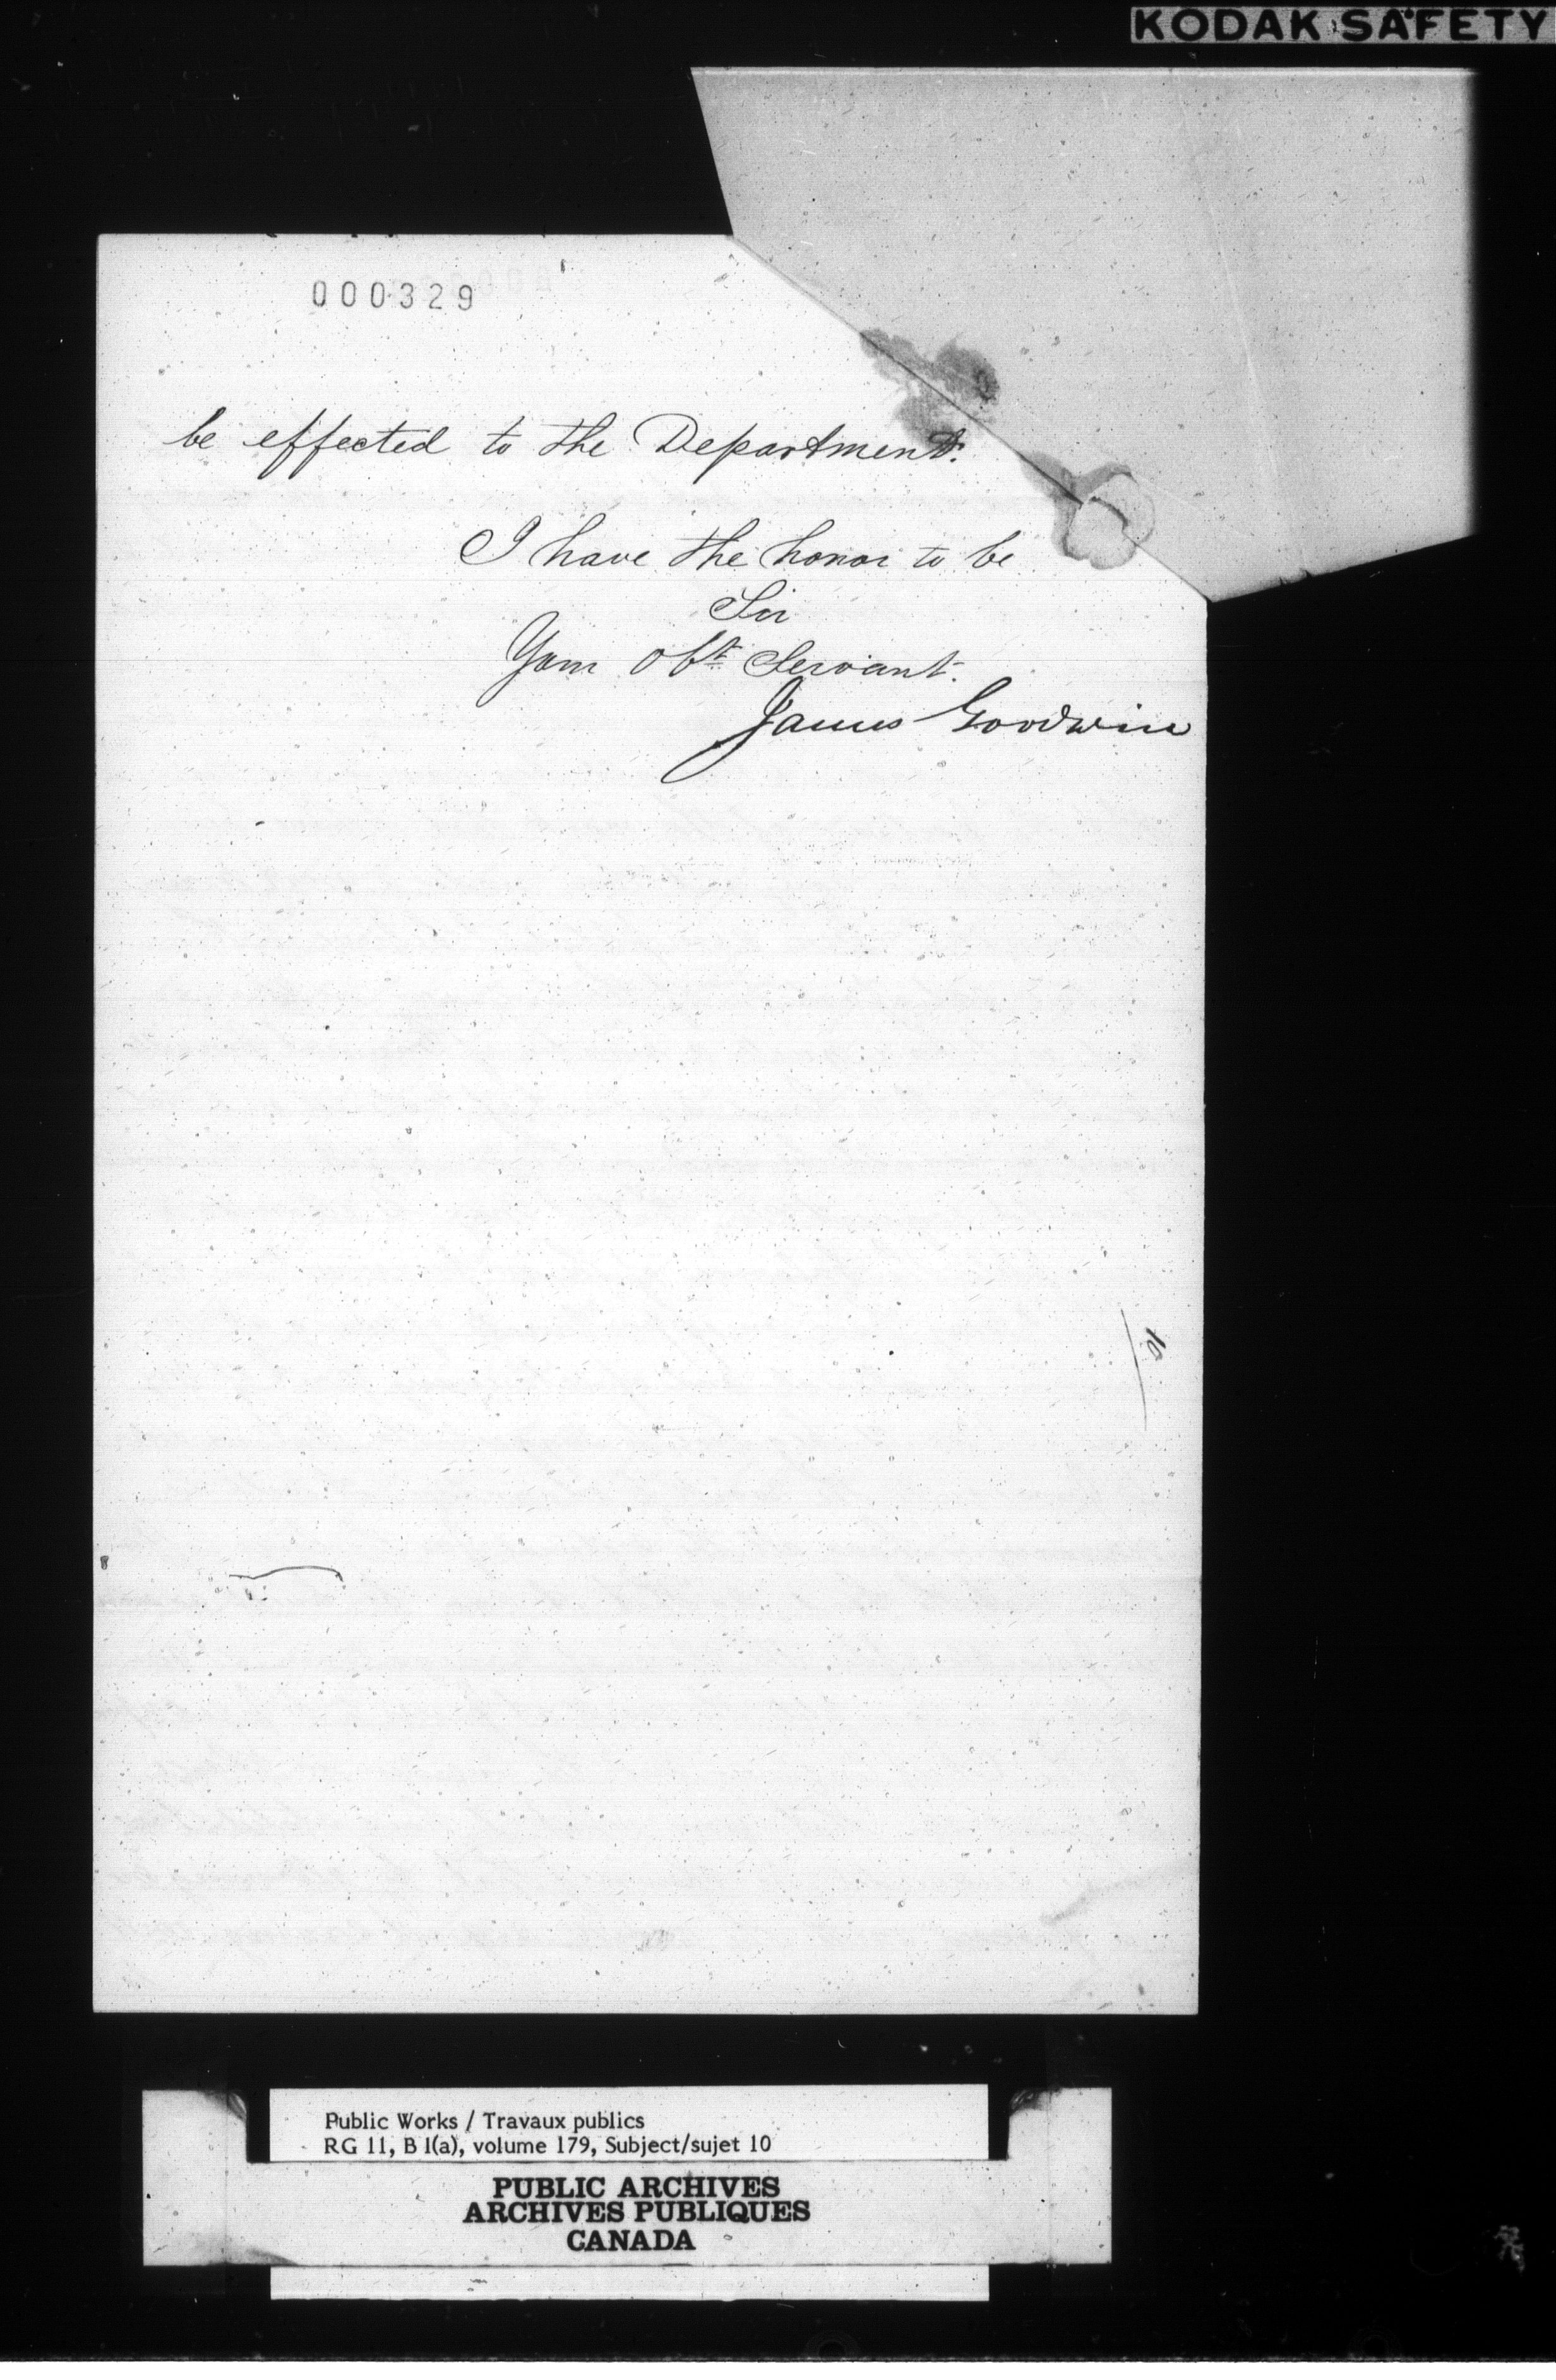 KODAK SAFETY
000329
be effected to the Department.
I have the honor to be
Sir
Your Obt Servant.
James Goodwin
10
Public Works / Travaux publics
RG 11, B 1(a), volume 179, Subject/sujet 10
PUBLIC ARCHIVES
ARCHIVES PUBLIQUES
CANADA